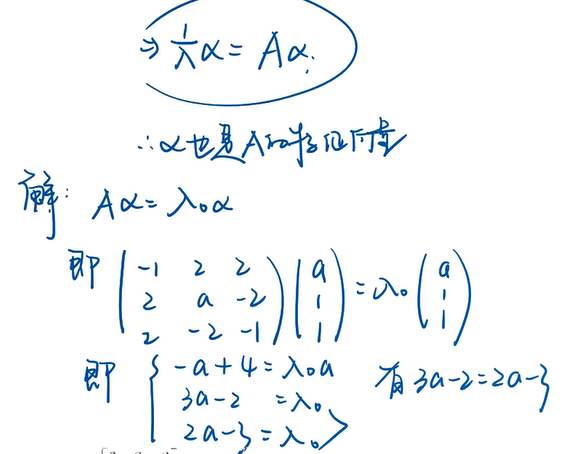 ⇒ 1/λ α = Aα.
∴ α也是A的特征向量
解: Aα = λ₀α
即 ( -1 2 2 ; 2 a -2 ; 2 -2 -1 ) ( a ; 1 ; 1 ) = λ₀ ( a ; 1 ; 1 )
即 { -a+4 = λ₀a
3a-2 = λ₀ 有 3a-2 = 2a-3
2a-3 = λ₀